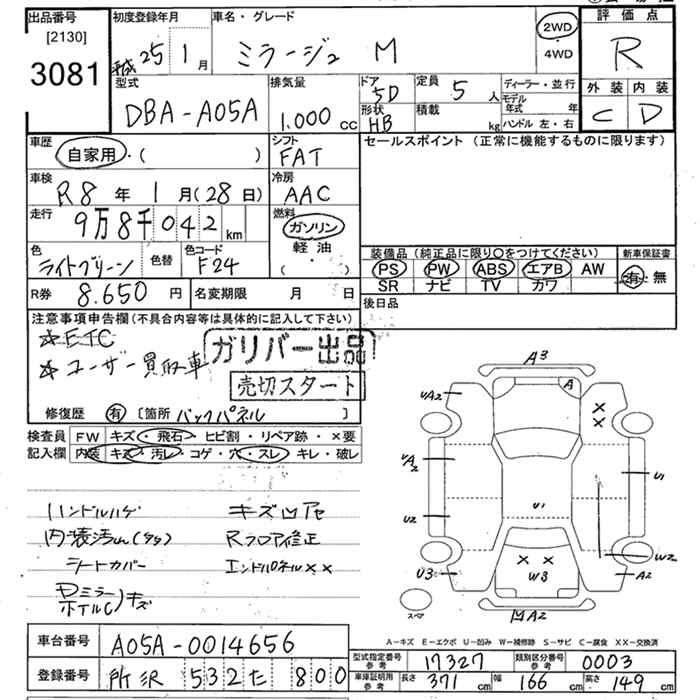 出品番号
[2130]
3081
初度登録年月
平成25年1月
車名・グレード
ミラージュ M
2WD
・
4WD
評価点
R
外装 内装
C D
型式
DBA-A05A
排気量
1.000 cc
ドア
5D
形状
HB
定員
5人
積載
kg
ディーラー・並行
モデル年式 年
ハンドル 左・右
車歴
自家用・( )
シフト
FAT
セールスポイント (正常に機能するものに限ります)
車検
R8年1月(28日)
冷房
AAC
走行
9万8千042km
燃料
ガソリン
軽油
( ・ )
色
ライトグリーン
色替
色コード
F24
装備品 (純正品に限り○をつけてください)
PS PW ABS エアB AW
SR ナビ TV カワ
新車保証書
有・無
R券 8.650円
名変期限 月 日
後日品
注意事項申告欄(不具合内容等は具体的に記入して下さい)
☆ETC
☆ユーザー買取車
ガリバー出品
売切スタート
修復歴 有 〔箇所 バックパネル 〕
検査員 FW キズ・飛石・ヒビ割・リペア跡・×要
記入欄 内装 キズ・汚レ・コゲ・穴・スレ・キレ・破レ
ハンドルハゲ キズ凹アセ
シートカバー エンドパネル××
Rフロア修正
ホイルC)キズ
A3
A
UA2
××
UA2
U1
U2
U1
××
W3
W2
U3
A2
スペア
A2
A-キズ E-エクボ U-凹み W-補修跡 S-サビ C-腐食 XX-交換済
車台番号 A05A-0014656
登録番号 所沢 532た 800
型式指定番号
参考
17327
類別区分番号
参考
0003
車庫証明用
参考
長さ 371cm 幅 166cm 高さ 149cm